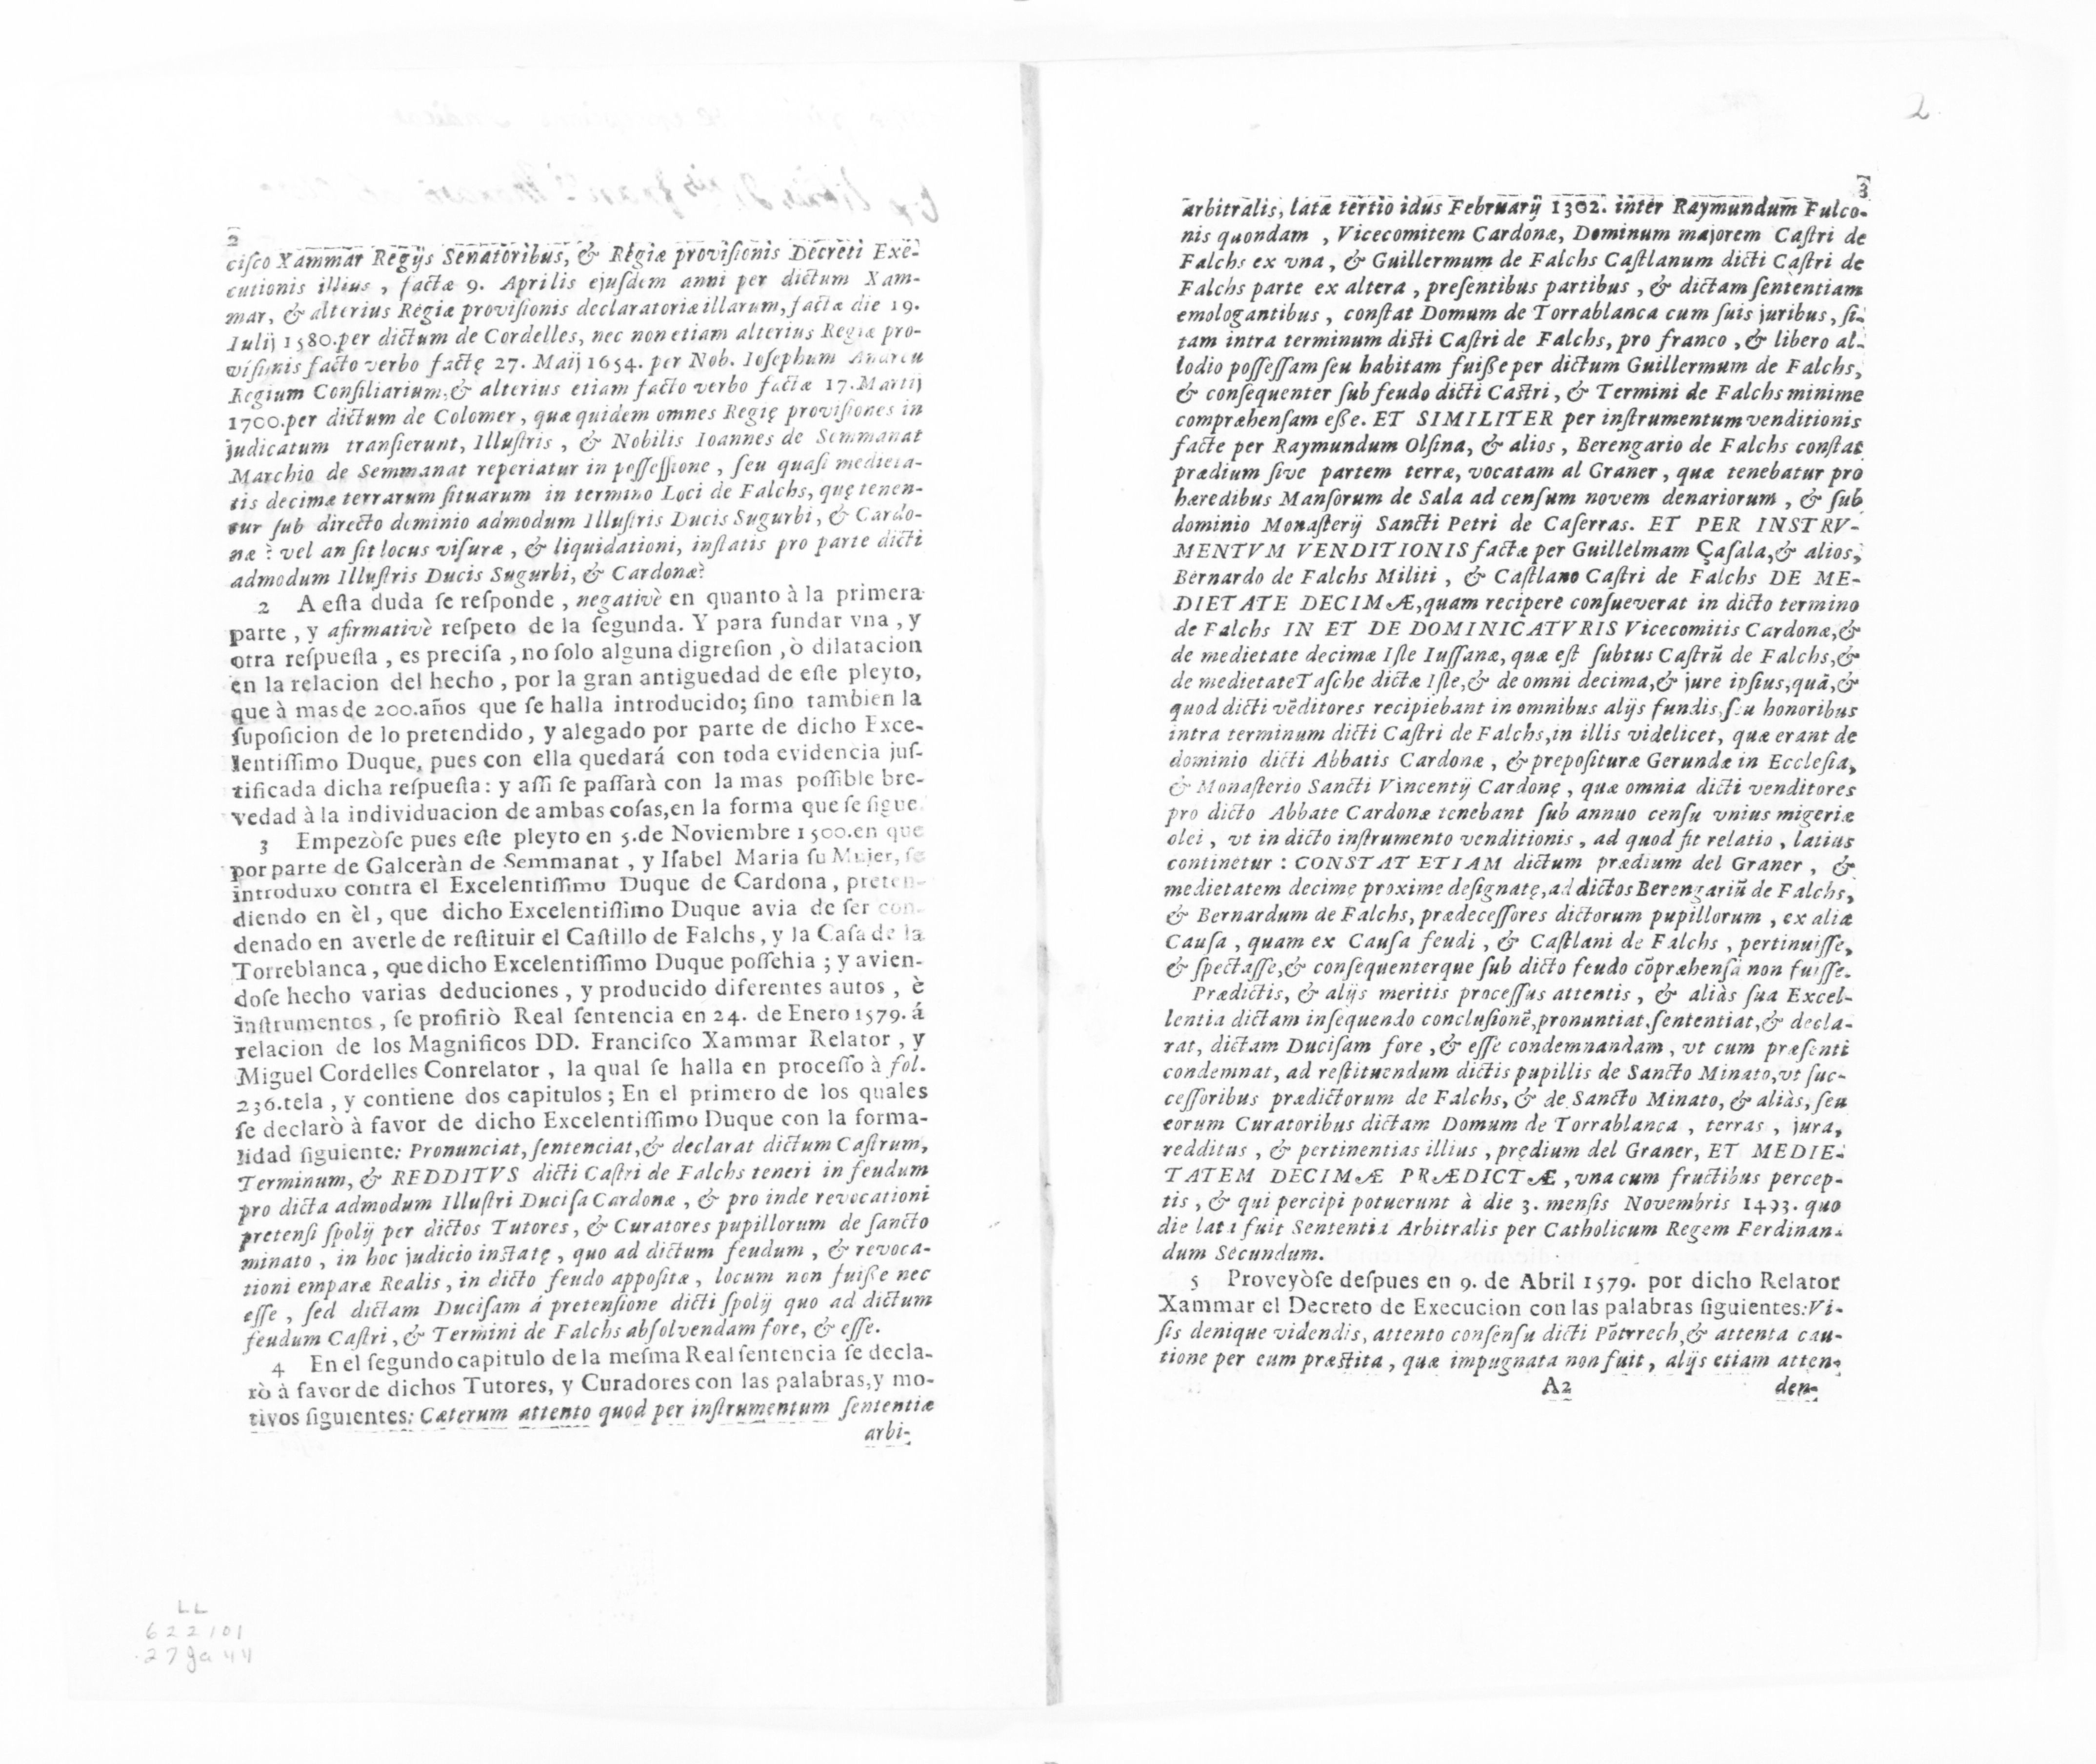 2
cisco Xammar Regijs Senatoribus, & Regiæ provisionis Decreti Exe-
cutionis illius, factæ 9. Aprilis ejusdem anni per dictum Xam-
mar, & alterius Regiæ provisionis declaratoriæ illarum, factæ die 19.
Iulij 1580. per dictum de Cordelles, nec non etiam alterius Regiæ pro-
visionis facto verbo factę 27. Maij 1654. per Nob. Iosephum Andreu
Regium Consiliarium, & alterius etiam facto verbo factæ 17. Martij
1700. per dictum de Colomer, quæ quidem omnes Regię provisiones in
judicatum transierunt, Illustris, & Nobilis Ioannes de Semmanat
Marchio de Semmanat reperiatur in possessione, seu quasi medieta-
tis decimæ terrarum situarum in termino Loci de Falchs, quę tenen-
tur sub directo dominio admodum Illustris Ducis Sugurbi, & Cardo-
næ? vel an sit locus visuræ, & liquidationi, instatis pro parte dicti
admodum Illustris Ducis Sugurbi, & Cardonæ?
2 A esta duda se responde, negativè en quanto à la primera
parte, y afirmativè respeto de la segunda. Y para fundar vna, y
otra respuesta, es precisa, no solo alguna digresion, ò dilatacion
en la relacion del hecho, por la gran antiguedad de este pleyto,
que à mas de 200. años que se halla introducido; sino tambien la
suposicion de lo pretendido, y alegado por parte de dicho Exce-
lentissimo Duque, pues con ella quedará con toda evidencia jus-
tificada dicha respuesta: y assi se passarà con la mas possible bre-
vedad à la individuacion de ambas cosas, en la forma que se sigue.
3 Empezòse pues este pleyto en 5. de Noviembre 1500. en que
por parte de Galceràn de Semmanat, y Isabel Maria su Mujer, se
introduxo contra el Excelentissimo Duque de Cardona, preten-
diendo en èl, que dicho Excelentissimo Duque avia de ser con-
denado en averle de restituir el Castillo de Falchs, y la Casa de la
Torreblanca, que dicho Excelentissimo Duque possehia; y avien-
dose hecho varias deduciones, y producido diferentes autos, è
instrumentos, se profiriò Real sentencia en 24. de Enero 1579. á
relacion de los Magnificos DD. Francisco Xammar Relator, y
Miguel Cordelles Conrelator, la qual se halla en processo à fol.
236. tela, y contiene dos capitulos; En el primero de los quales
se declarò à favor de dicho Excelentissimo Duque con la forma-
lidad siguiente: Pronunciat, sentenciat, & declarat dictum Castrum,
Terminum, & REDDITVS dicti Castri de Falchs teneri in feudum
pro dicta admodum Illustri Ducisa Cardonæ, & pro inde revocationi
pretensi spolij per dictos Tutores, & Curatores pupillorum de sancto
minato, in hoc judicio instatę, quo ad dictum feudum, & revoca-
tioni emparæ Realis, in dicto feudo appositæ, locum non fuisse nec
esse, sed dictam Ducisam á pretensione dicti spolij quo ad dictum
feudum Castri, & Termini de Falchs absolvendam fore, & esse.
4 En el segundo capitulo de la mesma Real sentencia se decla-
rò à favor de dichos Tutores, y Curadores con las palabras, y mo-
tivos siguientes: Cæterum attento quod per instrumentum sententiæ
arbi-
2
3
arbitralis, latæ tertio idus Februarij 1302. inter Raymundum Fulco-
nis quondam, Vicecomitem Cardonæ, Dominum majorem Castri de
Falchs ex vna, & Guillermum de Falchs Castlanum dicti Castri de
Falchs parte ex altera, presentibus partibus, & dictam sententiam
emologantibus, constat Domum de Torrablanca cum suis juribus, si-
tam intra terminum dicti Castri de Falchs, pro franco, & libero al-
lodio possessam seu habitam fuisse per dictum Guillermum de Falchs,
& consequenter sub feudo dicti Castri, & Termini de Falchs minime
compræhensam esse. ET SIMILITER per instrumentum venditionis
facte per Raymundum Olsina, & alios, Berengario de Falchs constat
prædium sive partem terræ, vocatam al Graner, quæ tenebatur pro
hæredibus Mansorum de Sala ad censum novem denariorum, & sub
dominio Monasterij Sancti Petri de Caserras. ET PER INSTRV-
MENTVM VENDITIONIS factæ per Guillelmam Çasala, & alios,
Bernardo de Falchs Militi, & Castlano Castri de Falchs DE ME-
DIETATE DECIMÆ, quam recipere consueverat in dicto termino
de Falchs IN ET DE DOMINICATVRIS Vicecomitis Cardonæ, &
de medietate decimæ Iste Iussanæ, quæ est subtus Castrũ de Falchs, &
de medietate Tasche dictæ Iste, & de omni decima, & jure ipsius, quã, &
quod dicti vẽditores recipiebant in omnibus alijs fundis, seu honoribus
intra terminum dicti Castri de Falchs, in illis videlicet, quæ erant de
dominio dicti Abbatis Cardonæ, & prepositura Gerundæ in Ecclesia,
& Monasterio Sancti Vincentij Cardonę, quæ omnia dicti venditores
pro dicto Abbate Cardonæ tenebant sub annuo censu vnius migeriæ
olei, vt in dicto instrumento venditionis, ad quod fit relatio, latius
continetur: CONSTAT ETIAM dictum prædium del Graner, &
medietatem decime proxime designatę, ad dictos Berengariũ de Falchs,
& Bernardum de Falchs, prædecessores dictorum pupillorum, ex aliæ
Causa, quam ex Causa feudi, & Castlani de Falchs, pertinuisse,
& spectasse, & consequenterque sub dicto feudo cõpræhensã non fuisse.
Prædictis, & alijs meritis processus attentis, & aliàs sua Excel-
lentia dictam insequendo conclusionẽ, pronuntiat, sententiat, & decla-
rat, dictam Ducisam fore, & esse condemnandam, vt cum præsenti
condemnat, ad restituendum dictis pupillis de Sancto Minato, vt suc-
cessoribus prædictorum de Falchs, & de Sancto Minato, & aliàs, seu
eorum Curatoribus dictam Domum de Torrablanca, terras, jura,
redditus, & pertinentias illius, prędium del Graner, ET MEDIE-
TATEM DECIMÆ PRÆDICTÆ, vna cum fructibus percep-
tis, & qui percipi potuerunt à die 3. mensis Novembris 1493. quo
die lata fuit Sententia Arbitralis per Catholicum Regem Ferdinan-
dum Secundum.
5 Proveyòse despues en 9. de Abril 1579. por dicho Relator
Xammar el Decreto de Execucion con las palabras siguientes: Vi-
sis denique videndis, attento consensu dicti Põtrrech, & attenta cau-
tione per eum præstita, quæ impugnata non fuit, alijs etiam atten-
A2 den-
LL
622101
.27ga44